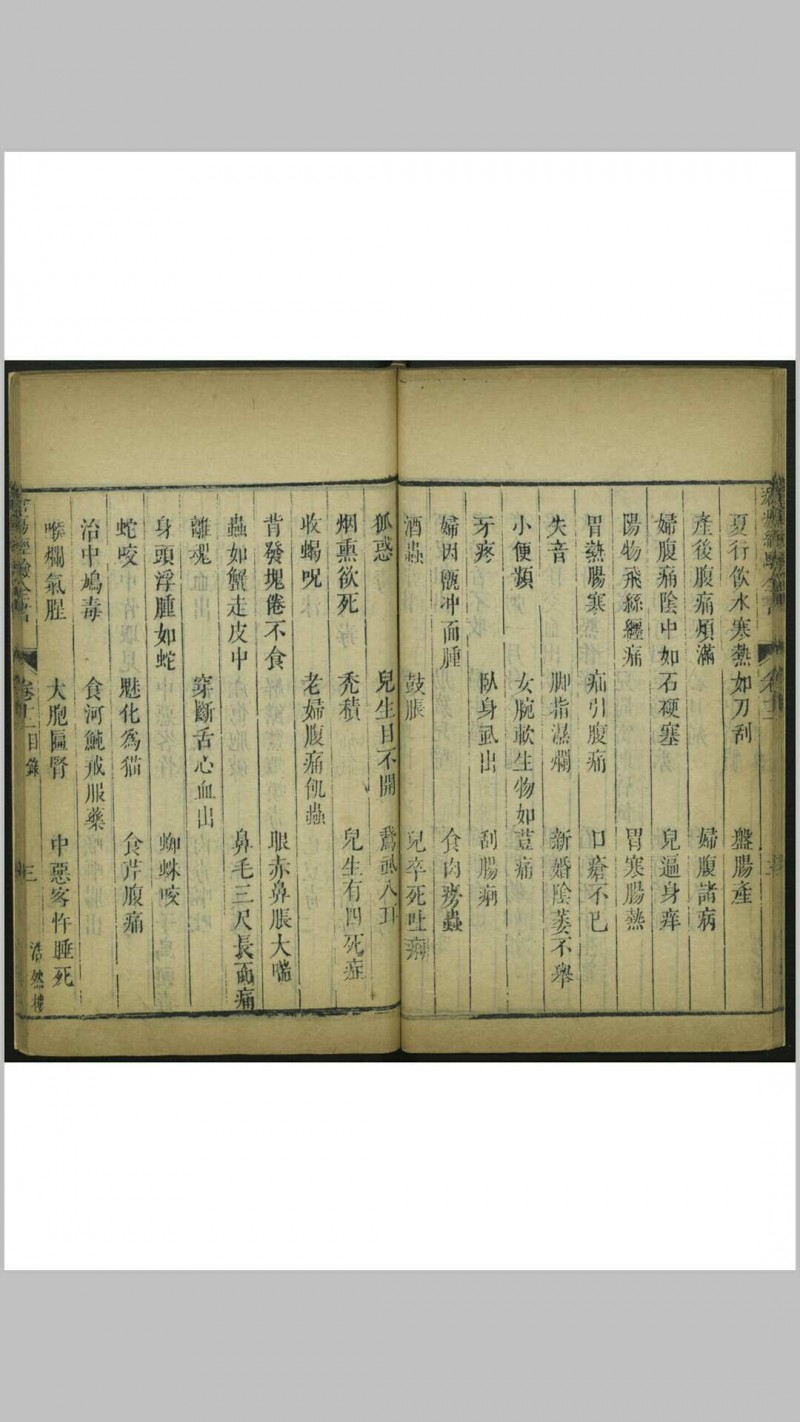 夏行飲水寒熱如刀刮　盤腸產
產後腹痛煩滿　婦腹諸病
婦腹痛陰中如石硬塞　兒遍身痒
陽物飛絲纏痛　胃寒腸熱
胃熱腸寒　痛引腹痛　口瘡不已
失音　腳指濕爛　新婚陰萎不舉
小便頻　女腕軟生物如荳痛
牙疼　臥身虱出　刮腸痢
婦因甑冲面腫　食肉勞蟲
酒蟲　鼓脹　兒卒死吐痢
狐惑　兒生目不開　入耳
烟熏欲死　禿積　兒生有四死症
收蝎呪　老婦腹痛蟲
背發塊倦不食　眼赤鼻脹大喘
蟲如蟹走皮中　鼻毛三尺長面痛
離魂　穿斷舌心血出
身頭浮腫如蛇　蜘蛛咬
蛇咬　魅化為猫　食芹腹痛
治中鳩毒　食河魨戒服藥
喉爛氣腥　大胞匾腎　中惡客忤睡死
卷十二目錄　三　浩然樓